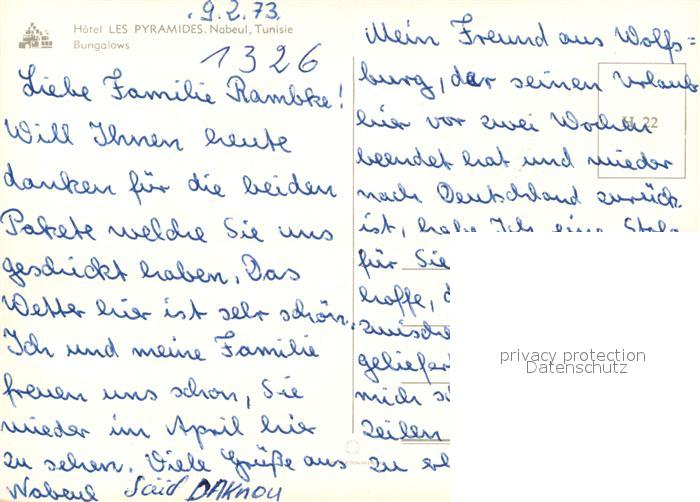 9.2.73.
Hôtel LES PYRAMIDES. Nabeul, Tunisie
Bungalows
1326
Liebe Familie Rambke!
Will Ihnen heute
danken für die beiden
Pakete welche Sie uns
geschickt haben. Das
Wetter hier ist sehr schön.
Ich und meine Familie
freuen uns schon, Sie
wieder im April hier
zu sehen. Viele Grüße aus
Nabeul Said DAKHOU
Mein Freund aus Wolfs=
burg, der seinen Urlaub
hier vor zwei Wochen
beendet hat und wieder
nach Deutschland zurück
ist, habe Ich eine
für Sie
hoffe,
zwisch
geliefer
mich
zeilen
zu
22
privacy protection
Datenschutz